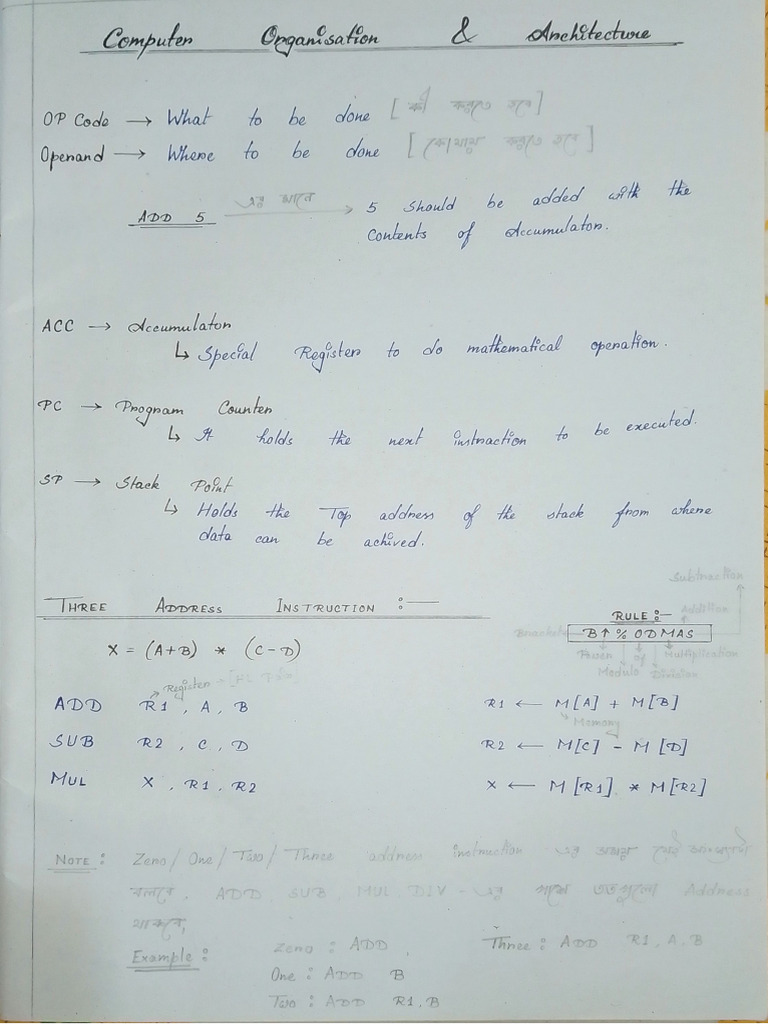 Computer Organisation & Architecture
OP Code → What to be done [কী করতে হবে]
Operand → Where to be done [কোথায় করতে হবে]
ADD 5 এর মানে → 5 should be added with the
contents of Accumulator.
ACC → Accumulator
↳ Special Register to do mathematical operation.
PC → Program Counter
↳ It holds the next instruction to be executed.
SP → Stack Point
↳ Holds the Top address of the stack from where
data can be achived.
Subtraction
THREE ADDRESS INSTRUCTION :—
RULE :— Addition
Brackets B↑%ODMAS
X = (A+B) * (C-D)
Power of Multiplication
Modulo Division
Register
ADD R1, A, B R1 ← M[A] + M[B]
Memory
SUB R2, C, D R2 ← M[C] - M[D]
MUL X, R1, R2 X ← M[R1] * M[R2]
NOTE : Zero/One/Two/Three address instruction -এর সময় যেই
বলবে, ADD, SUB, MUL, DIV -এর পাশে ততগুলো Address
থাকবে,
Example : Zero : ADD Three : ADD R1, A, B
One : ADD B
Two : ADD R1, B